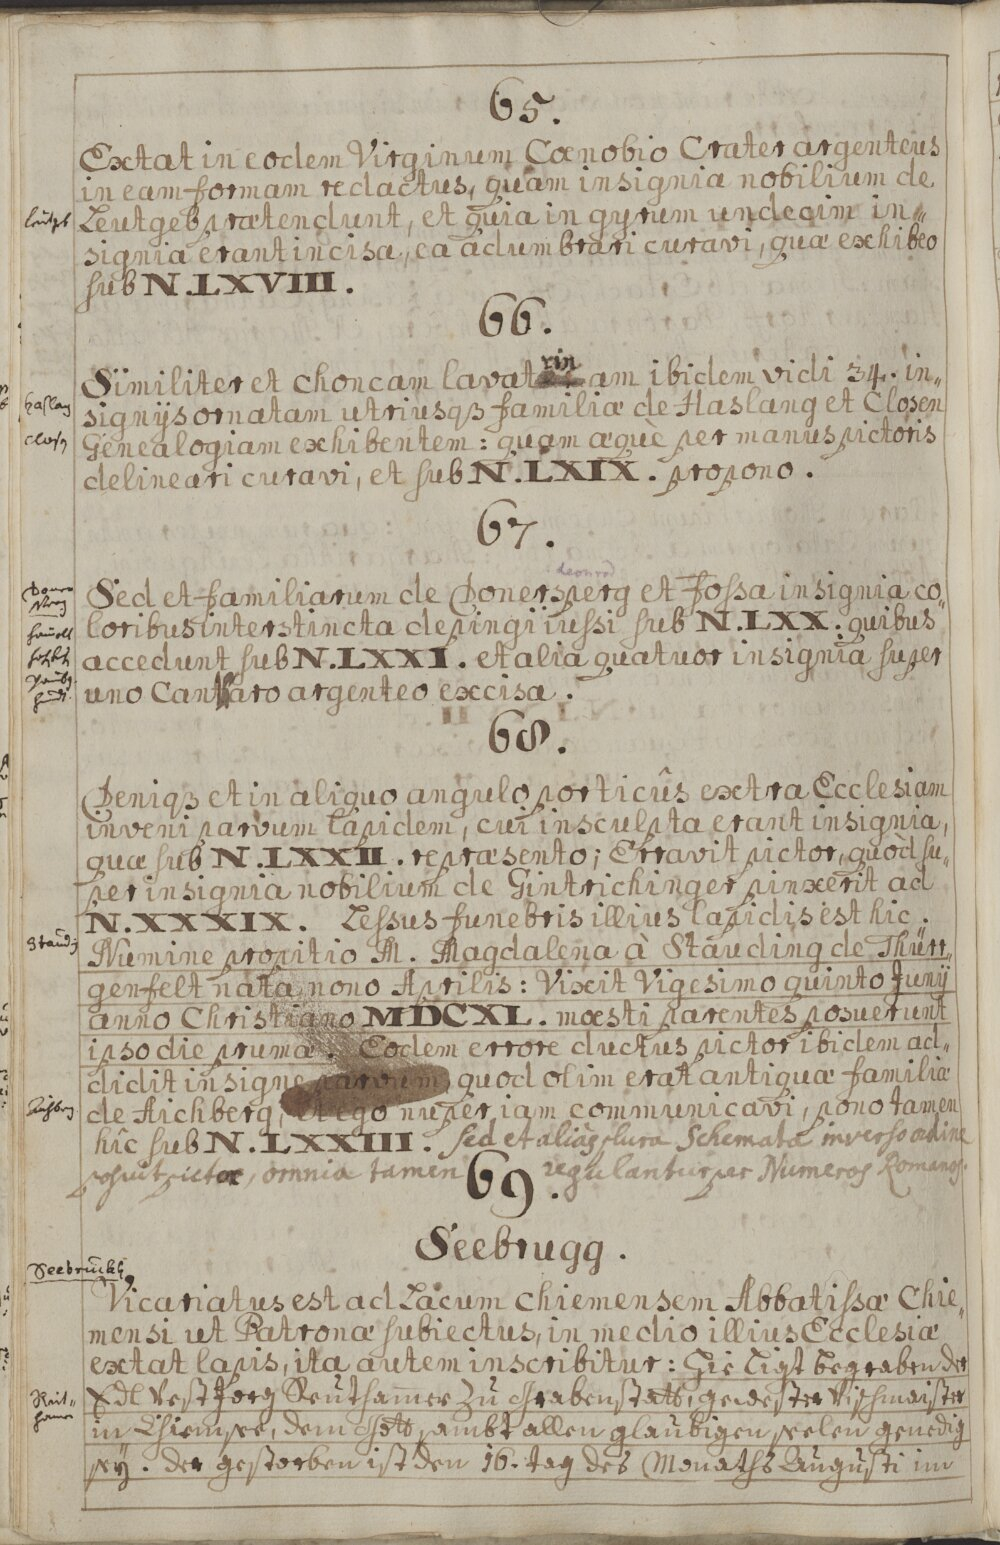 65.
Extat in eodem Virginum Cœnobio Crater argenteus
in eam formam redactus, quam insignia nobilium de
Leutgeb prætendunt, et quia in gyrum undecim in„
signia erant incisa, ea adumbrari curavi, quæ exhibeo
sub N.LXVIII.
66.
Similiter et choncam lavatrinam ibidem vidi 34. in„
Haslang
signijs ornatam utriusqȝ familiæ de Haslang et Closen
Closn
Genealogiam exhibentem: quam æquè per manus pictoris
delineari curavi, et sub N.LXIX. propono.
67.
Sed et familiarum de Donersperg et Fossa insignia co„
loribus interstincta depingi iussi sub N.LXX. quibus
accedunt sub N.LXXI. et alia quatuor insignia super
uno Cantharo argenteo excisa.
68.
Deniqȝ et in aliquo angulo porticûs extra Ecclesiam
inveni parvum lapidem, cui insculpta erant insignia,
quæ sub N.LXXII. repræsento; Erravit pictor, quòd su„
per insignia nobilium de Gintrichinger pinxerit ad
N.XXXIX. Lessus funebris illius lapidis est hic.
Staudg
Numine propitio M. Magdalena à Stauding de Thürr„
genfelt nata nono Aprilis: Vixit Vigesimo quinto Junij
anno Christiano MDCXL. mœsti parentes posuerunt
ipso die pruma. Eodem errore ductus pictor ibidem ad„
didit insigne parvum, quod olim erat antiquæ familiæ
Aichberg
de Aichberg, et ego nuper iam communicavi, pono tamen
hîc sub N.LXXIII. sed et aliàs plura Schemata inverso ordine
posuit pictor, omnia tamen regulantur per Numeros Romanos.
69.
Seebrugg.
Seebruckh
Vicariatus est ad Lacum Chiemensem Abbatissæ Chie„
mensi ut Patronæ subiectus, in medio illius Ecclesiæ
extat lapis, ita autem inscribitur: Hie ligt begraben der
Edl Vest Jorg Reuthamer zu Grabenstatt, gewester Vischmaister
in Chiemsee, dem Gott sambt allen glaubigen seelen genedig
sey. der gestorben ist den 16. tag des Monaths Augusti im